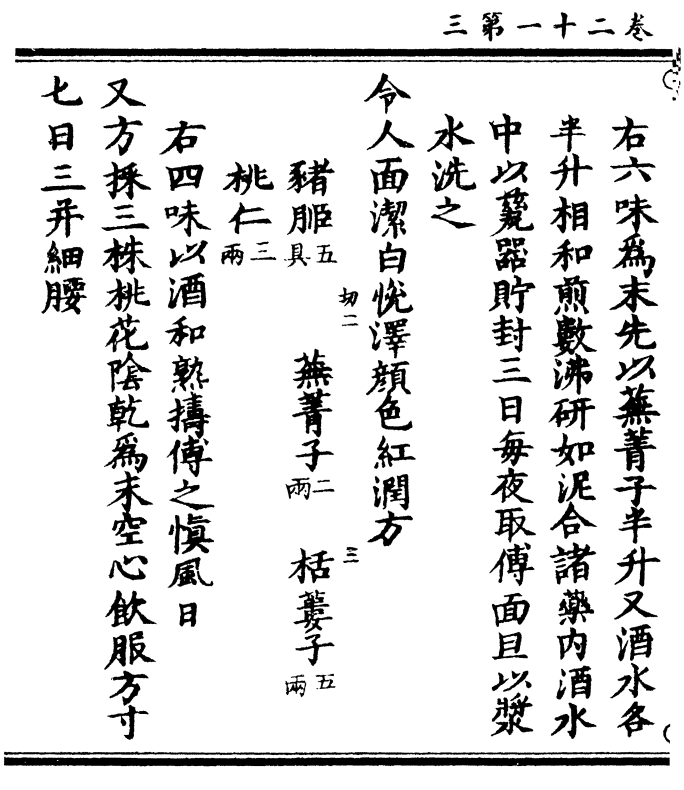 卷二十一第三
右六味為末先以蕪菁子半升又酒水各
半升相和煎數沸研如泥合諸藥內酒水
中以甆器貯封三日每夜取傅面旦以漿
水洗之
令人面潔白悅澤顏色紅潤方
豬胰五具 切二 蕪菁子二兩 三 栝蔞子五兩
桃仁三兩
右四味以酒和熟擣傅之慎風日
又方採三株桃花陰乾為末空心飲服方寸
七日三并細腰